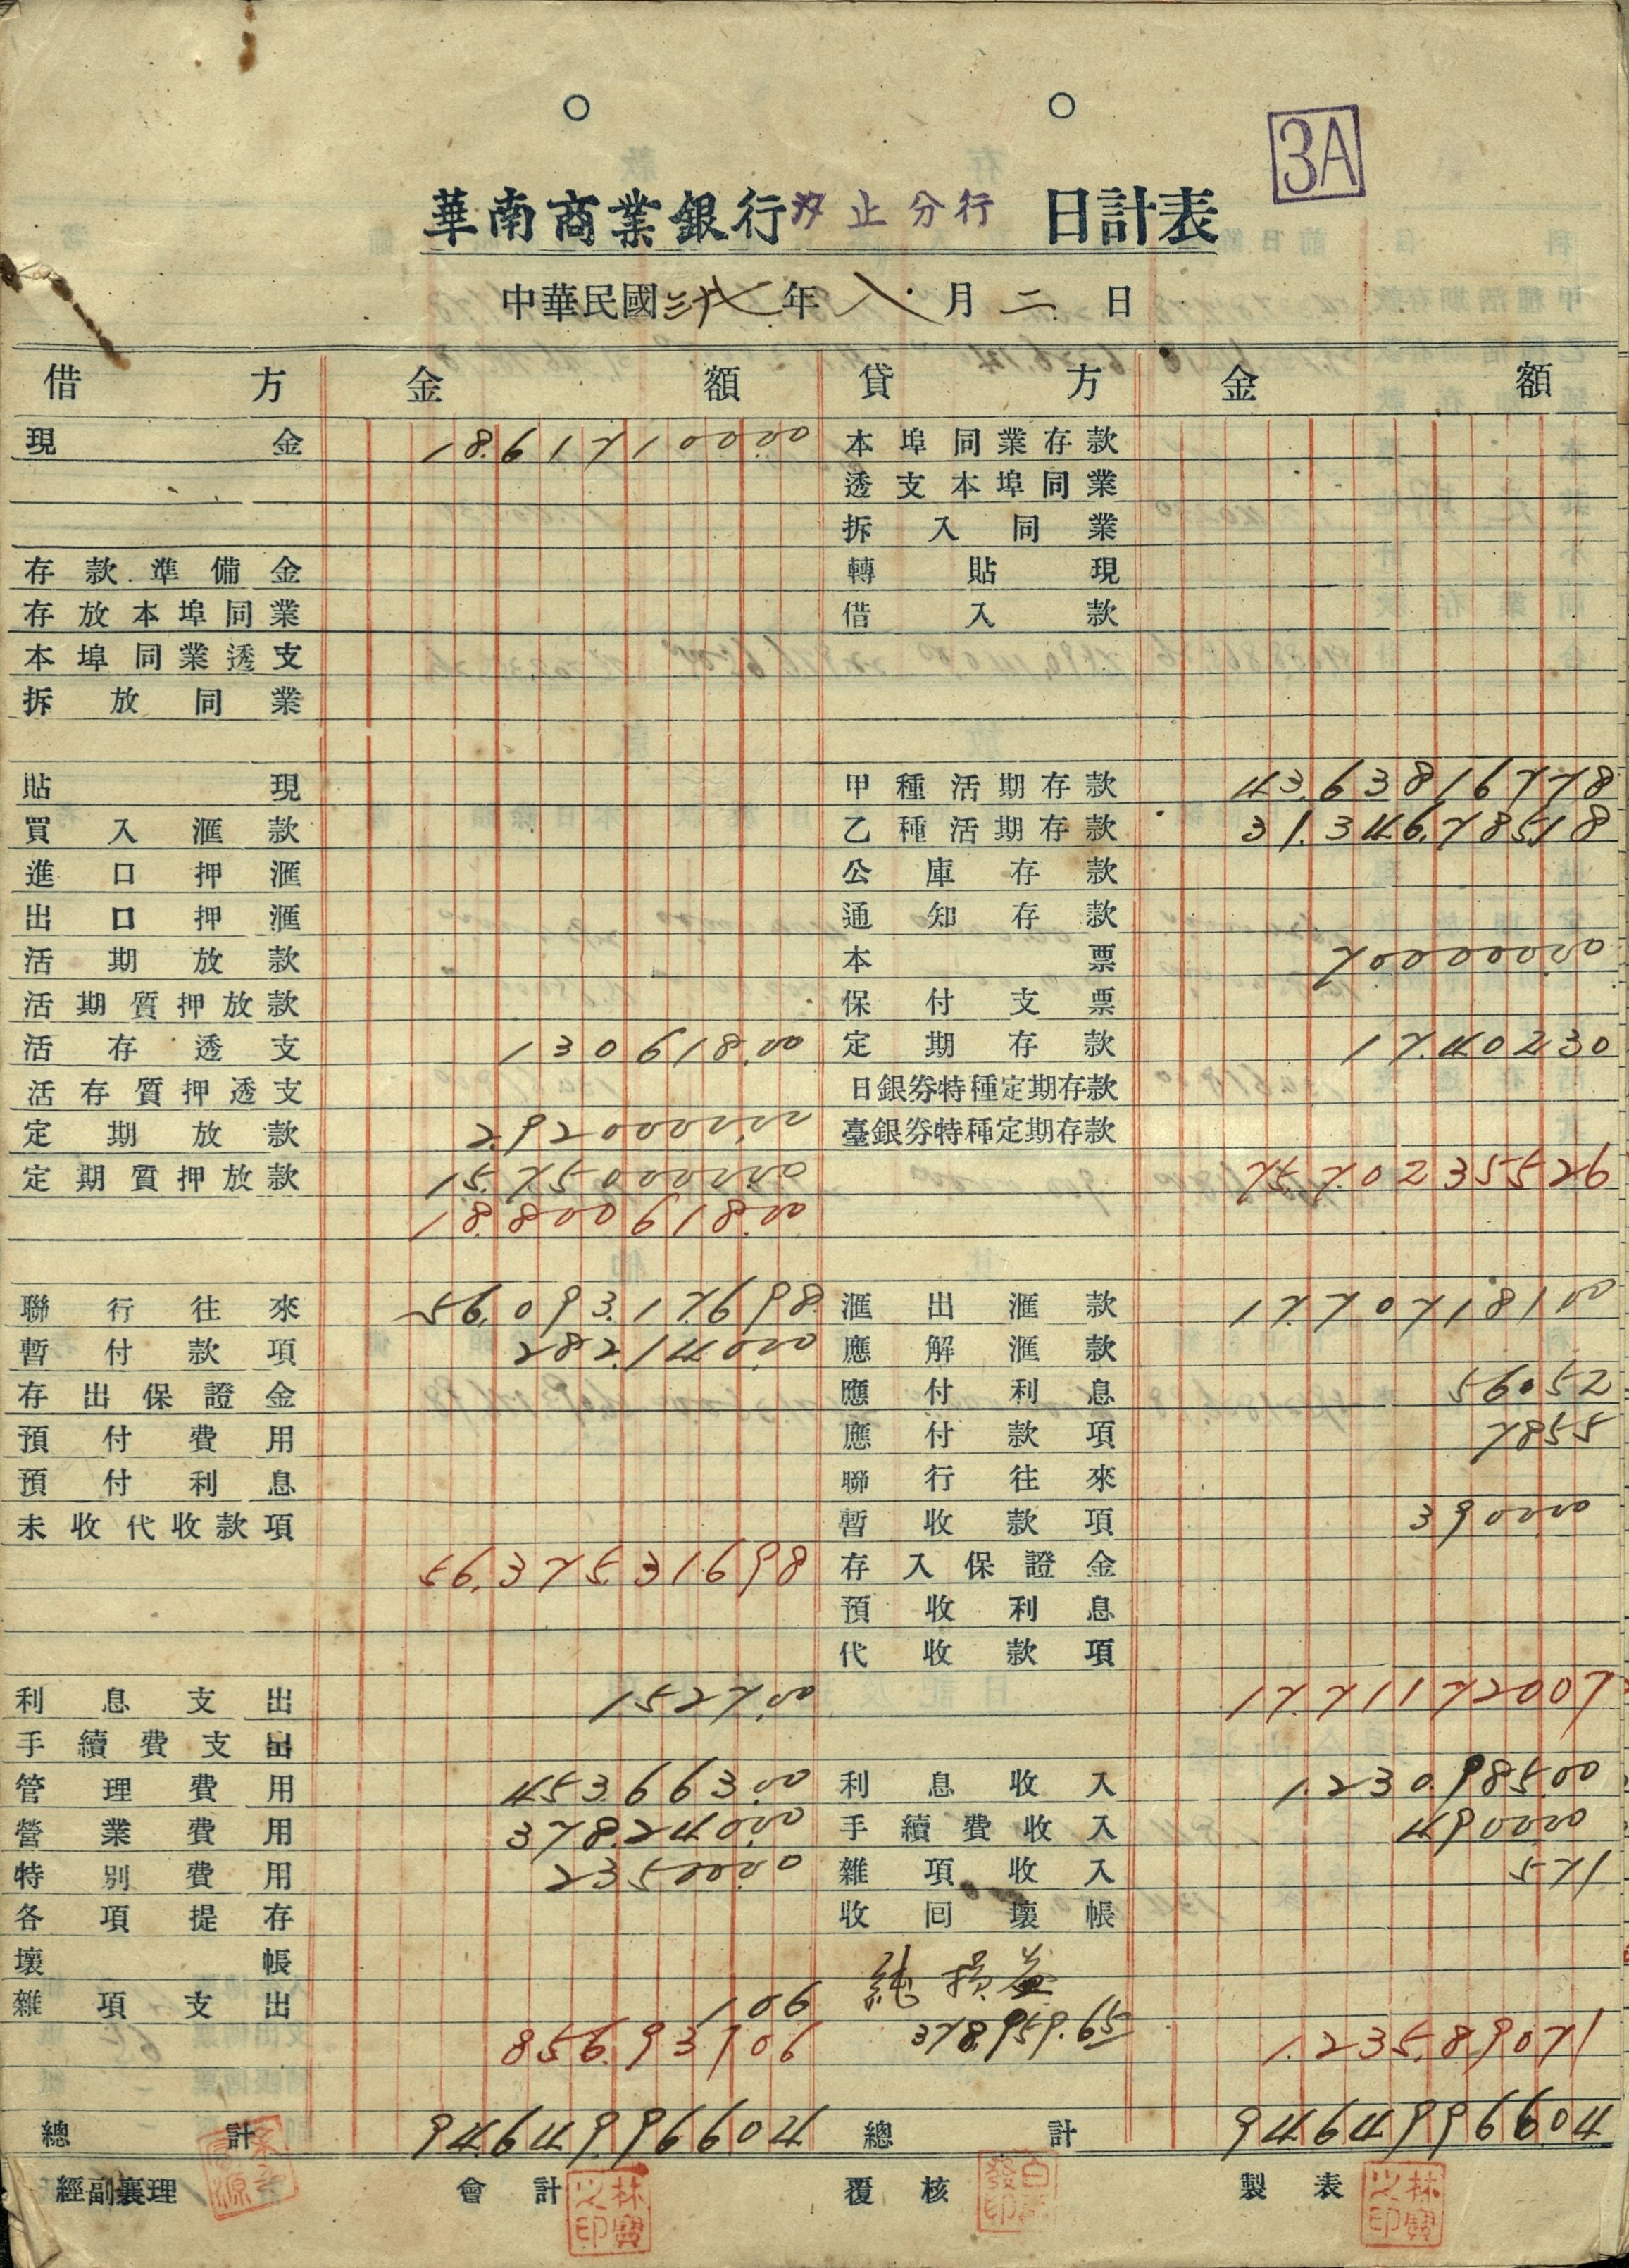 3A
華南商業銀行汐止分行 日計表
中華民國三十七年八月二日
借方 金額 貸方 金額
現金 18.617100.00 本埠同業存款
透支本埠同業
拆入同業
存款準備金 轉貼現
存放本埠同業 借入款
本埠同業透支
拆放同業
貼現 甲種活期存款 43.63816778
買入滙款 乙種活期存款 31.346.78518
進口押滙 公庫存款
出口押滙 通知存款
活期放款 本票 700000.00
活期質押放款 保付支票
活存透支 130618.00 定期存款 17.40230
活存質押透支 日銀券特種定期存款
定期放款 2.920000.00 臺銀券特種定期存款
定期質押放款 15.750000.00 75.70235526
18.800618.00
聯行往來 56.093.17698 滙出滙款 17.70718100
暫付款項 282.140.00 應解滙款
存出保證金 應付利息 560.52
預付費用 應付款項 7855
預付利息 聯行往來
未收代收款項 暫收款項 3900.00
56.375.31698 存入保證金
預收利息
代收款項
利息支出 1527.00 17.71172007
手續費支出
管理費用 453.663.00 利息收入 1.230.985.00
營業費用 378.240.00 手續費收入 4900.00
特別費用 23500.00 雜項收入 571
各項提存 收回壞帳
壞帳 純損益
雜項支出 1.06 378.959.65
856.93106 1.235.89071
總計 94.649.96604 總計 94649966.04
經副襄理 會計 覆核 製表
林寶之印 林寶之印